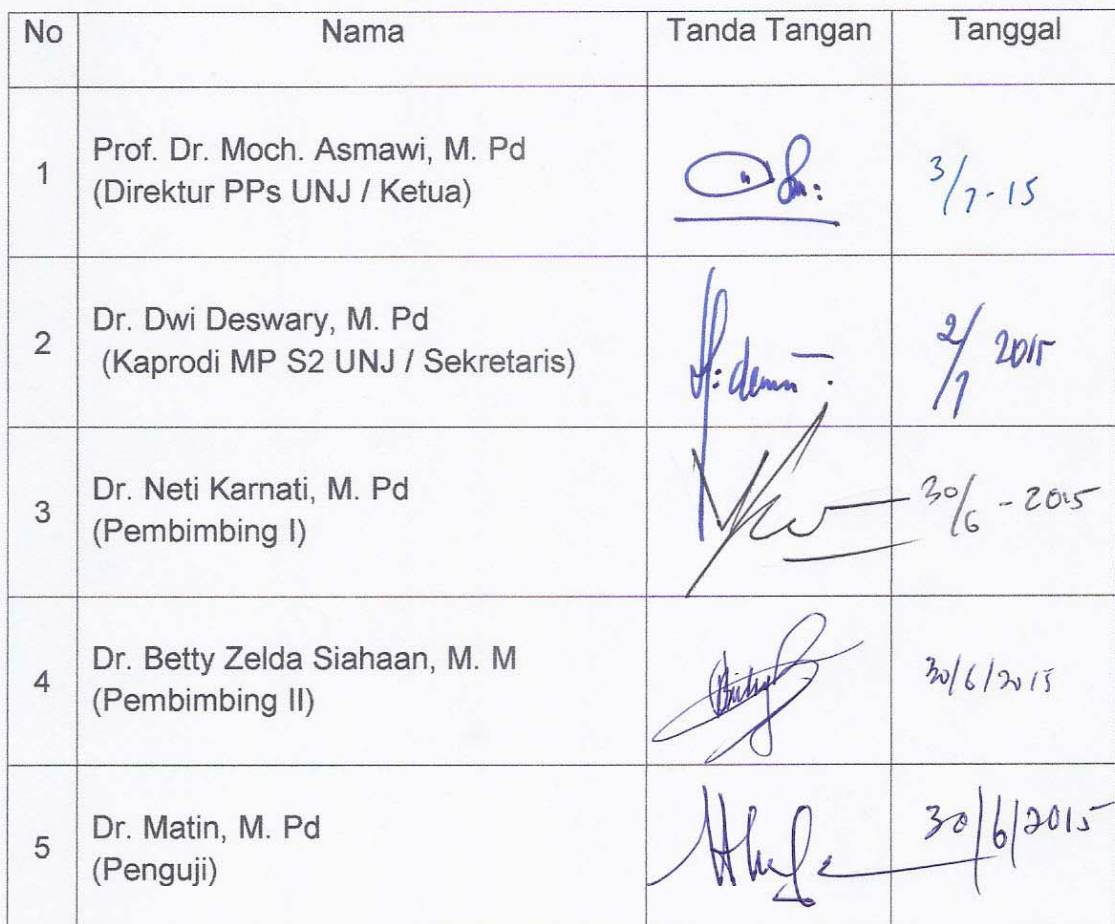 No Nama Tanda Tangan Tanggal
1 Prof. Dr. Moch. Asmawi, M. Pd
(Direktur PPs UNJ / Ketua)
3/7-15
2 Dr. Dwi Deswary, M. Pd
(Kaprodi MP S2 UNJ / Sekretaris)
2/7 2015
3 Dr. Neti Karnati, M. Pd
(Pembimbing I)
30/6 - 2015
4 Dr. Betty Zelda Siahaan, M. M
(Pembimbing II)
30/6/2015
5 Dr. Matin, M. Pd
(Penguji)
30/6/2015